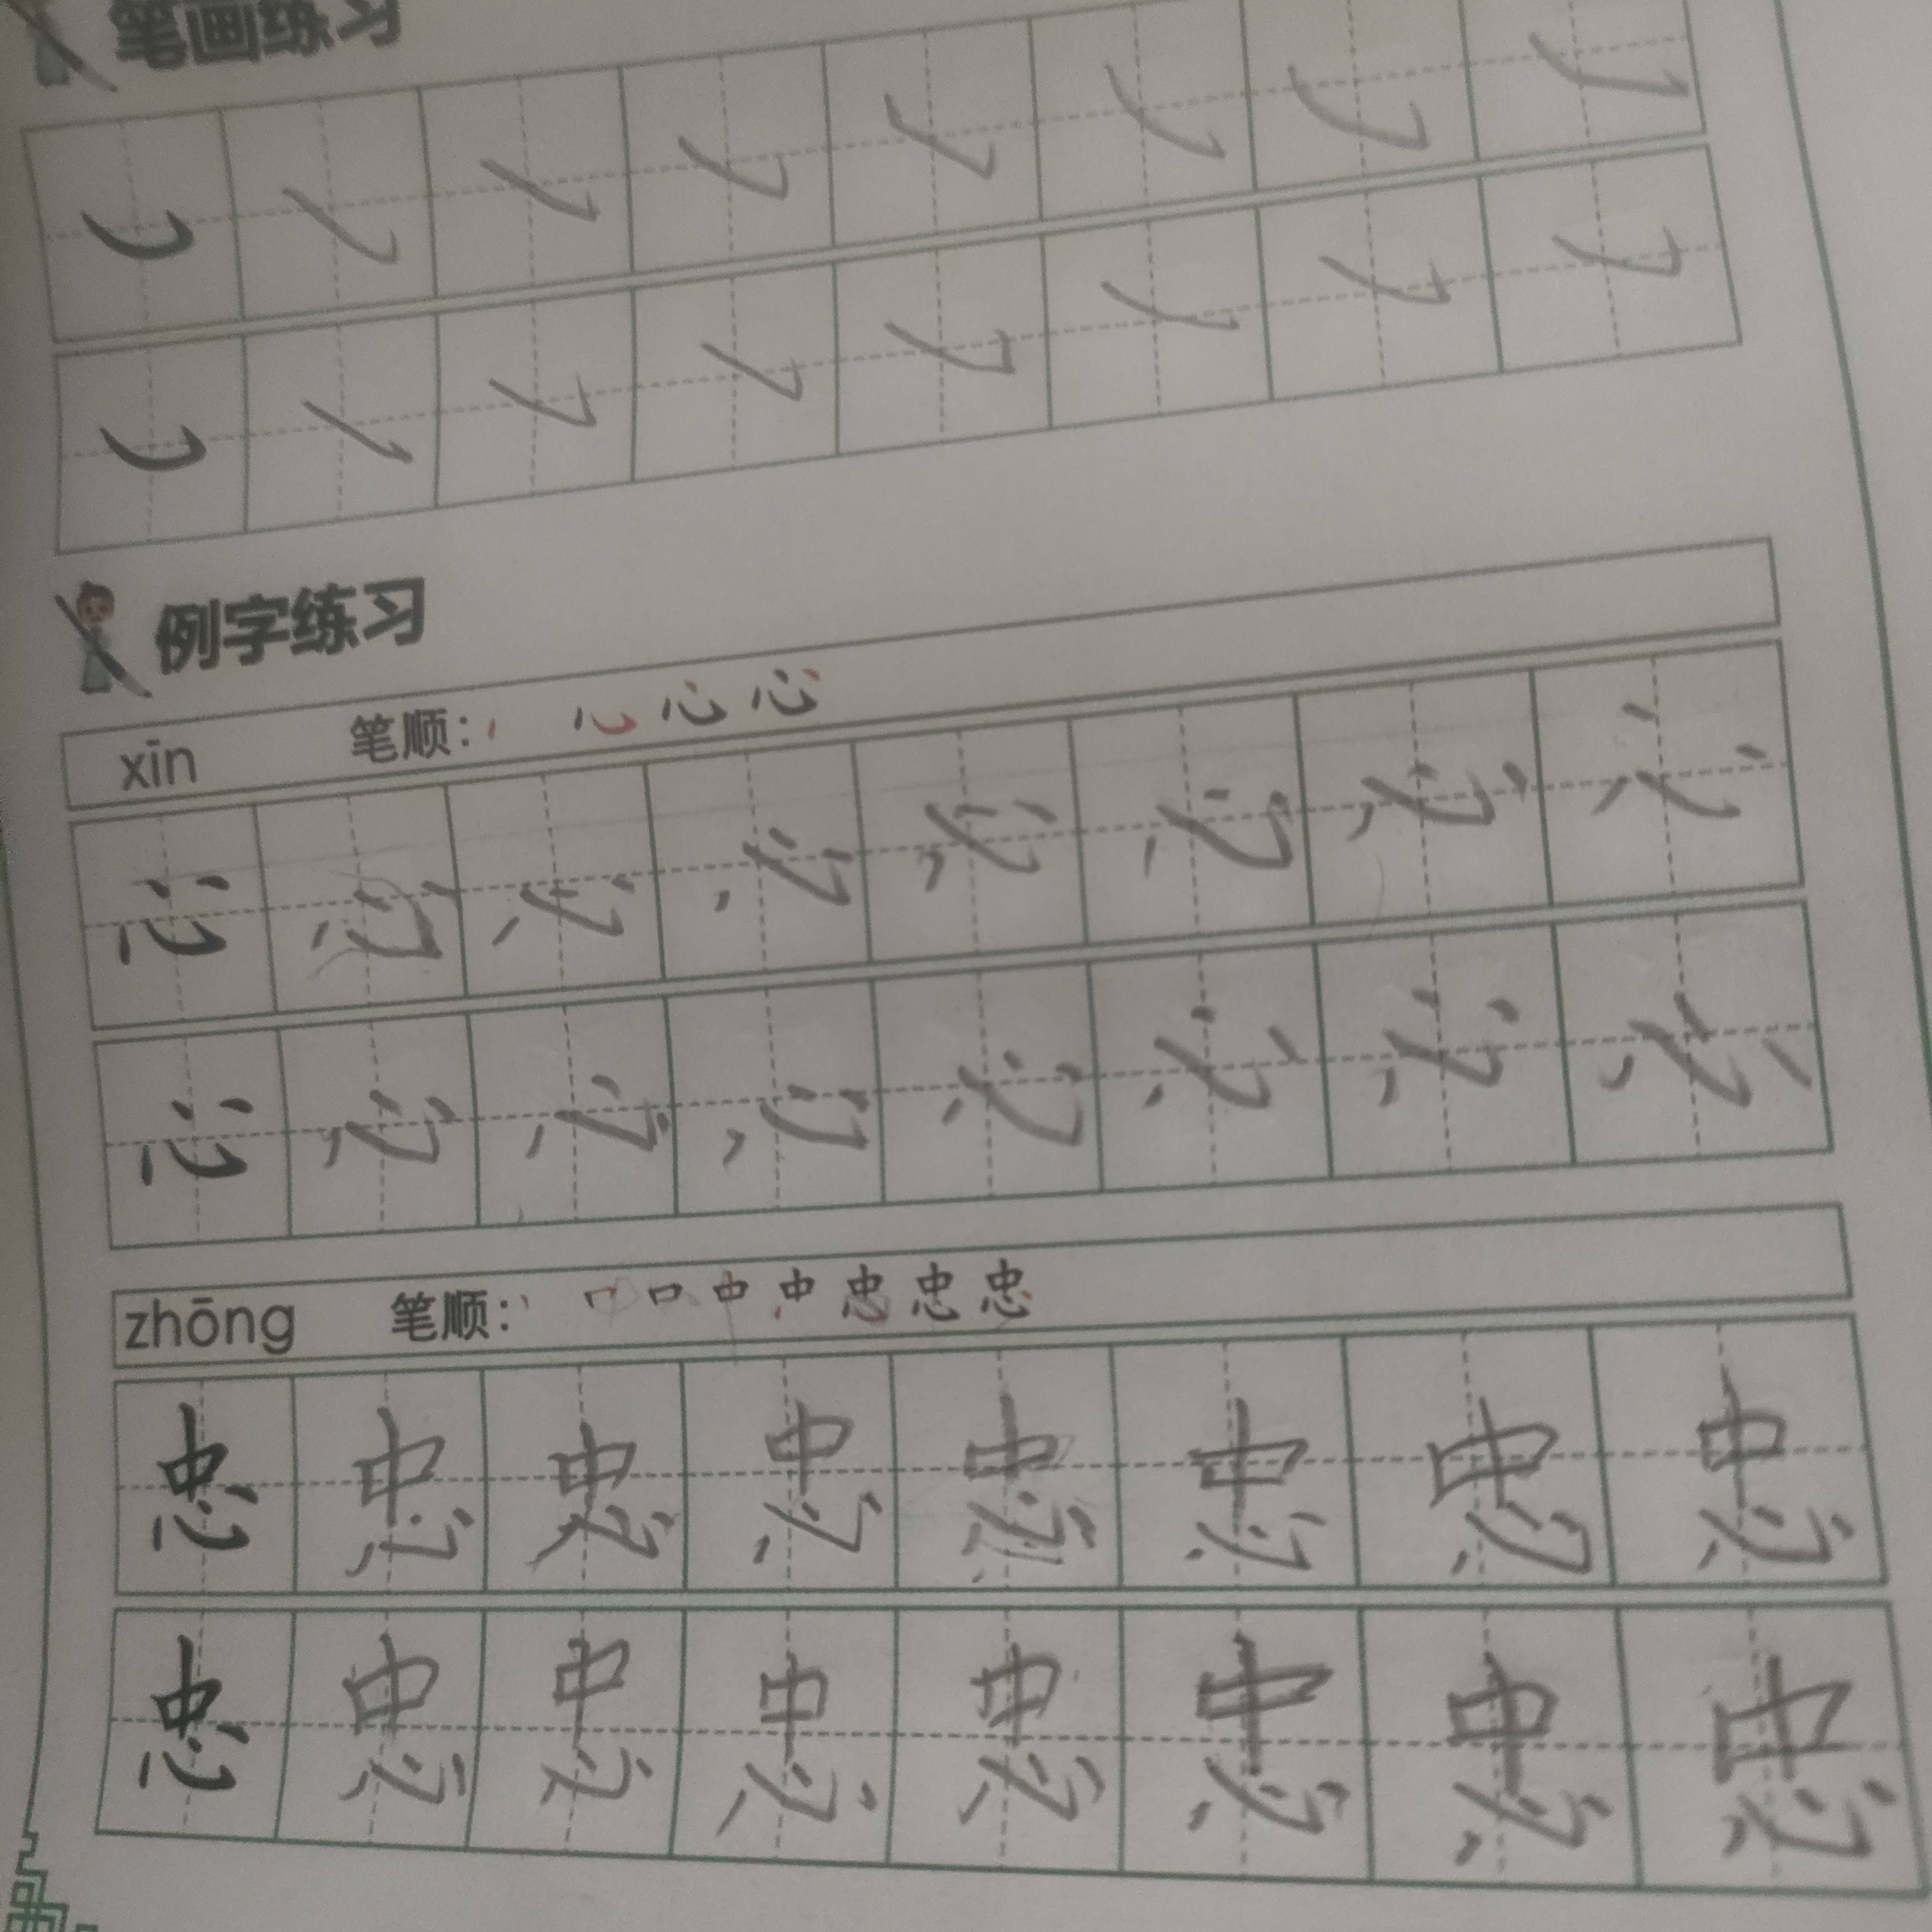 笔画练习
㇃ ㇃ ㇃ ㇃ ㇃ ㇃ ㇃ ㇃
㇃ ㇃ ㇃ ㇃ ㇃ ㇃ ㇃ ㇃
例字练习
xīn 笔顺: 心
心 心 心 心 心 心 心 心
心 心 心 心 心 心 心 心
zhōng 笔顺: 丨 𠃍 口 中 中 忠 忠 忠
忠 忠 忠 忠 忠 忠 忠 忠
忠 忠 忠 忠 忠 忠 忠 忠